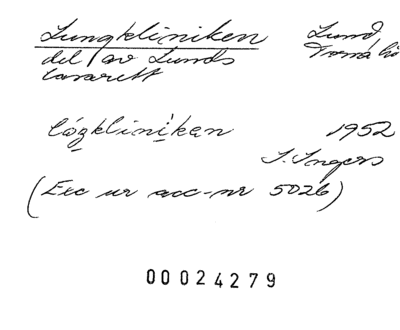 Lungkliniken Lund,
del av Lunds
lasarett
lógkliniken 1952
S. Ingers
(Exc ur acc-nr 5026)
00024279